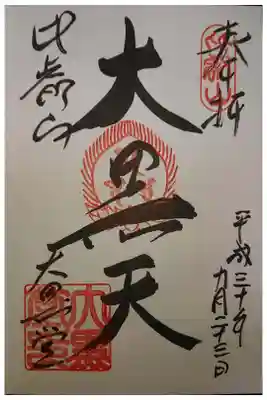 奉拝
平成三十年
九月二十三日
大黒天
比叡山
大黒堂
大黒堂